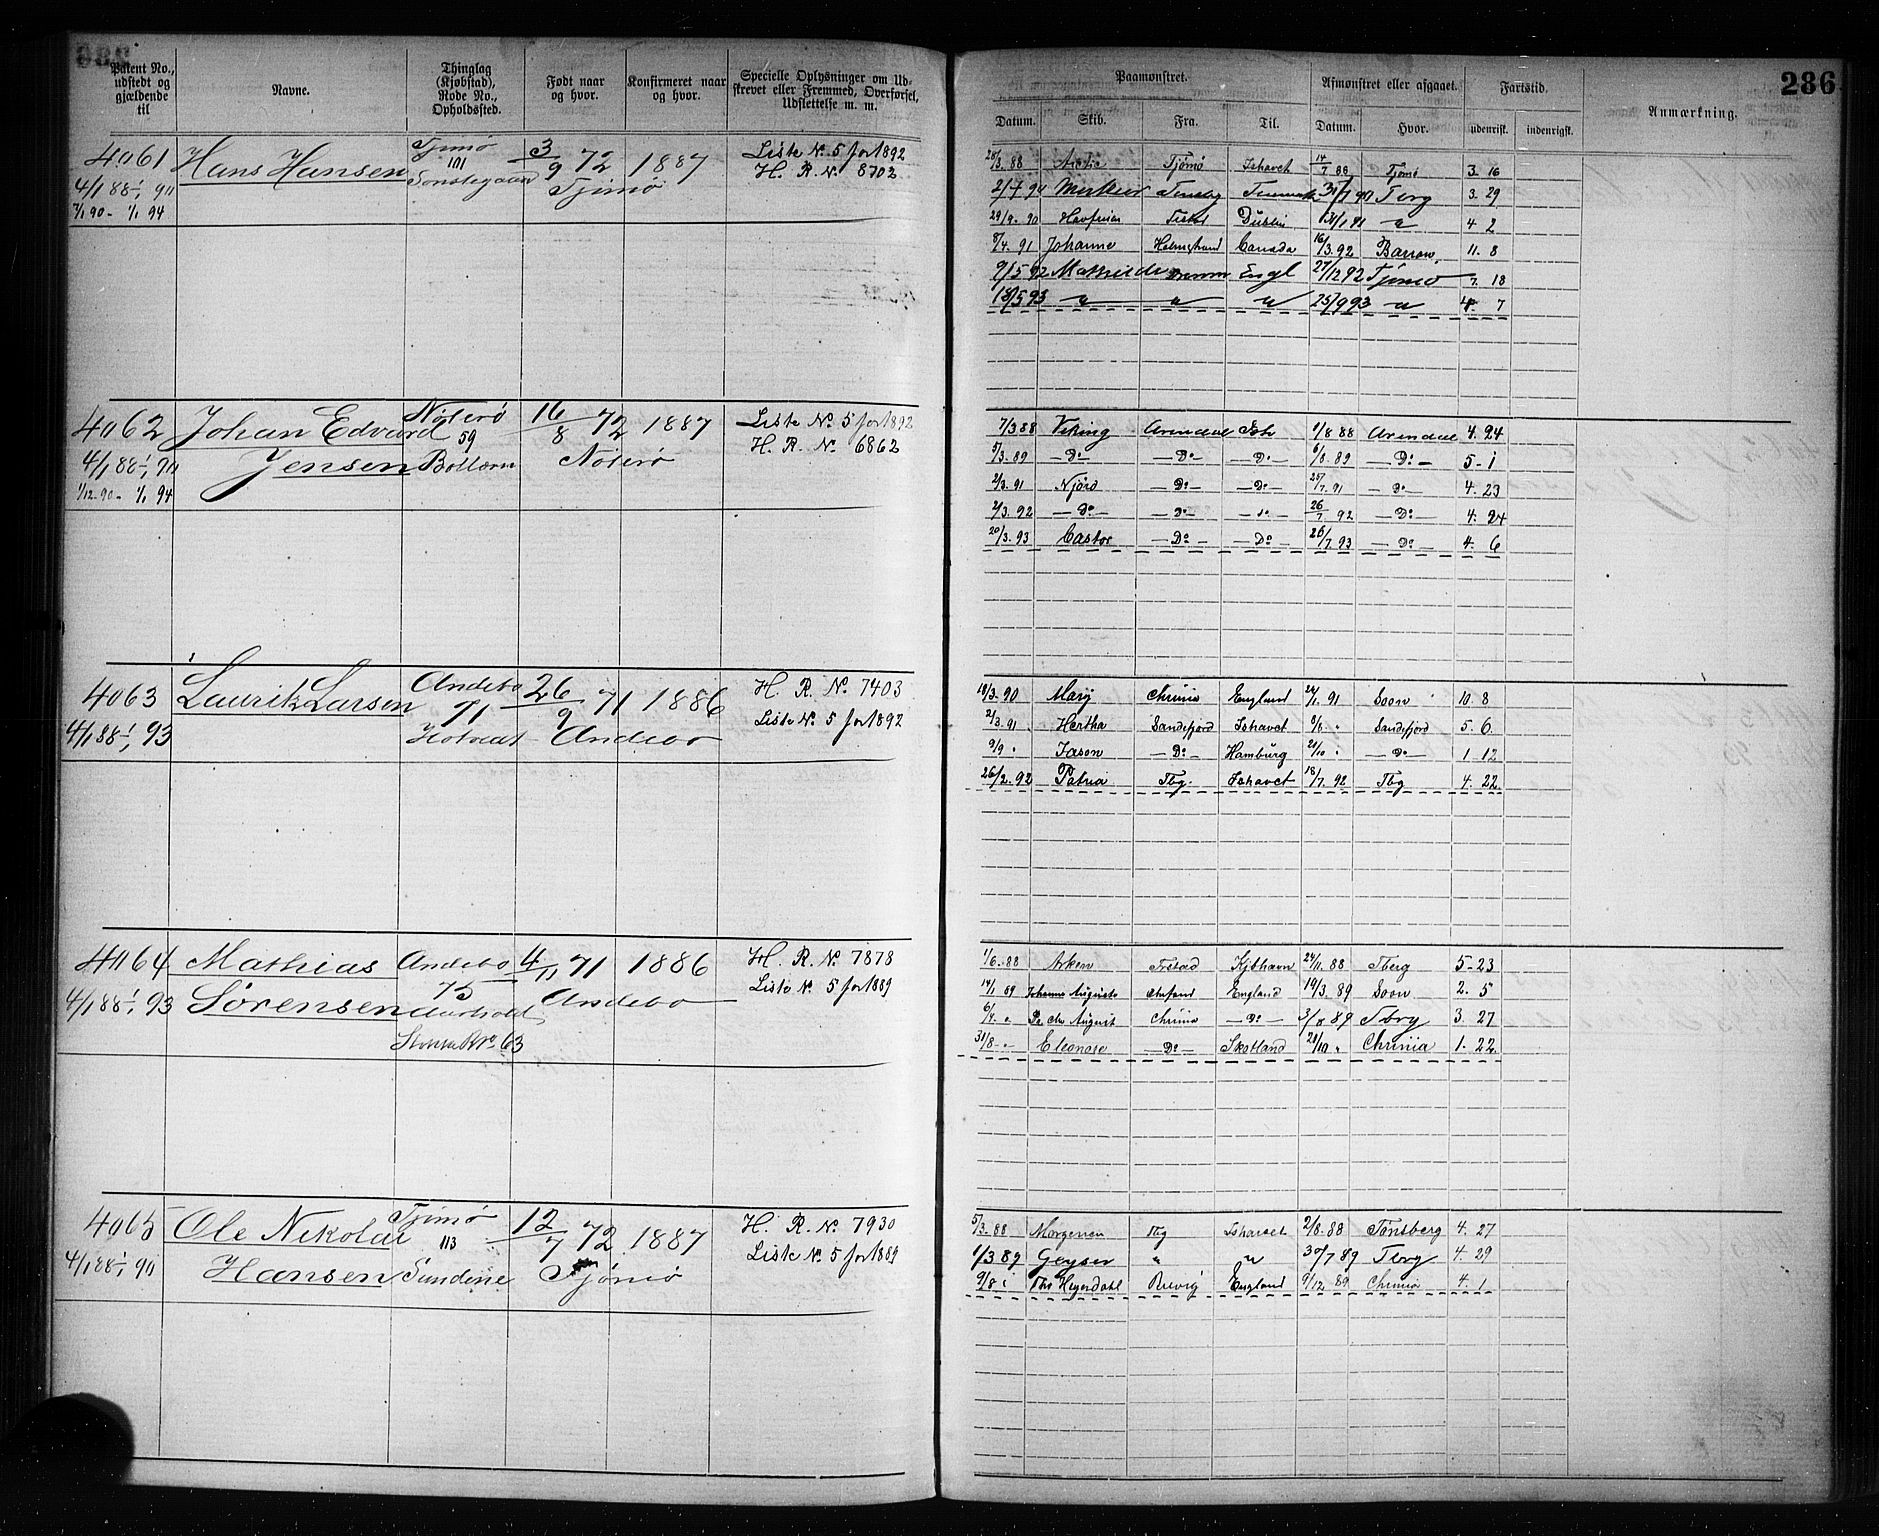 286
Patent No., udstedt og gjældende til
Navne.
Thinglag (Kjøbstad), Rode No., Opholdssted.
Født naar og hvor.
Konfirmeret naar og hvor.
Specielle Oplysninger om Udskrevet eller Fremmed, Overførsel, Udslettelse m. m.
Paamønstret.
Afmønstret eller afgaaet.
Fartstid.
Anmærkning.
Datum. Skib. Fra. Til. Datum. Hvor. udenrikst. indenrigst.
4061 Hans Hansen Tjømø 101 3/9 72 Tjømø 1887 Liste No. 5 for 1892
4/1 88 - 1/1 90 H. R. No. 8702
1/1 90 - 1/1 94
28/3 88 Arctic Tjømø Ishavet 14/7 88 Tjømø 3. 16
Tbrg 3. 29
29/9. 90 Dublin 4 2
8/4. 91 Johanne Holmestrand Canada 16/3. 92 Barrow 11. 8
9/5 92 Mathilde Engl 27/12 92 Tjømø 7. 18
18/5 93 " " " 25/9 93 " 4. 7
4062 Johan Edvard Jensen Nøterø 59 Bollærn 16/8 72 Nøterø 1887 Liste No. 5 for 1892
4/1 88 - 1/1 90 H. R. No. 6862
1/12. 90 - 1/1 94
7/3 88 Viking Arendal Ish 1/8 88 Arendal 4. 24
5/3. 89 - Do - - Do - - Do - 6/8. 89 - Do - 5 - 1
2/3. 91 Njørd - Do - - Do - 25/7. 91 - Do - 4. 23
2/3. 92 - Do - - Do - - Do - 26/7. 92 - Do - 4. 24
20/3. 93 Castor - Do - - Do - 26/7. 93 - Do - 4. 6
4063 Laurits Larsen Andebo 71 Hotvedt 26/9 71 Andebo 1886 H. R. No. 7403
4/1 88 - 1/1 93 Liste No. 5 for 1892
18/3. 90 Mary Chrinia England 26/1. 91 Soon 10. 8
2/3. 91 Hertha Sandefjord Ishavet 8/8 " Sandefjord 5. 6
9/9 " Jason - Do - Hamburg 21/10 " - Do - 1. 12
26/2. 92 Patria Tbg. Ishavet 18/7. 92 Tbg 4. 22
4064 Mathias Sørensen Andebo 75 4/11 71 Andebo 1886 H. R. No. 7878
4/1 88 - 1/1 93 Liste No. 5 for 1889
No. 63
1/6. 88 Arken Frstad Kjbhavn 24/11. 88 Tberg 5 - 23
14/1 89 Johanne Augusta England 19/3. 89 Soon 2. 5
August Chrinia - Do - 3/8 89 Tbrg 3. 27
31/8 - " - Eleonore - Do - Skotland 21/10 " Chrinia 1. 22
4065 Ole Nikolai Hansen Tjømø 113 Sundene 12/7 72 Tjømø 1887 H. R. No. 7930
4/1 88 - 1/1 90 Liste No. 5 for 1889
5/3. 88 Morgenen Tbg Ishavet 2/8. 88 Tønsberg 4. 27
1/3 89 Geyser " " 30/7 89 Tbrg 4. 29
9/8 " Ths Heyerdahl Brevig England 9/12. 89 Chrinia 4. 1